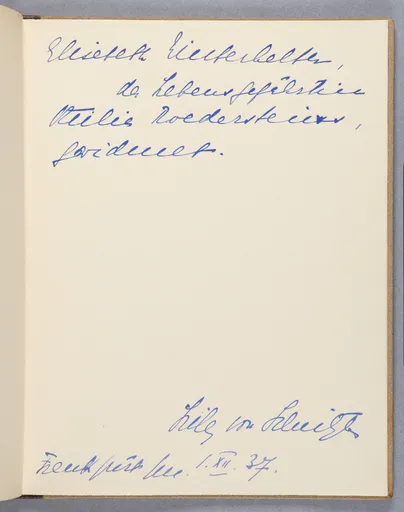 Elisabeth Winterhalter,
der Lebensgefährtin
Ottilie Roedersteins,
gewidmet.
Lilly von Schnitzler
Frankfurt /M. 1.XII.37.